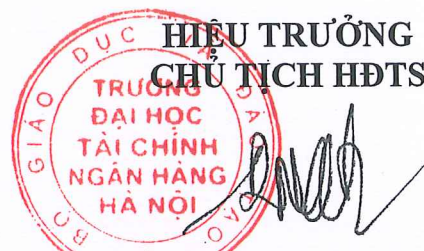 HIỆU TRƯỞNG
CHỦ TỊCH HĐTS
BỘ GIÁO DỤC VÀ ĐÀO TẠO
TRƯỜNG
ĐẠI HỌC
TÀI CHÍNH
NGÂN HÀNG
HÀ NỘI